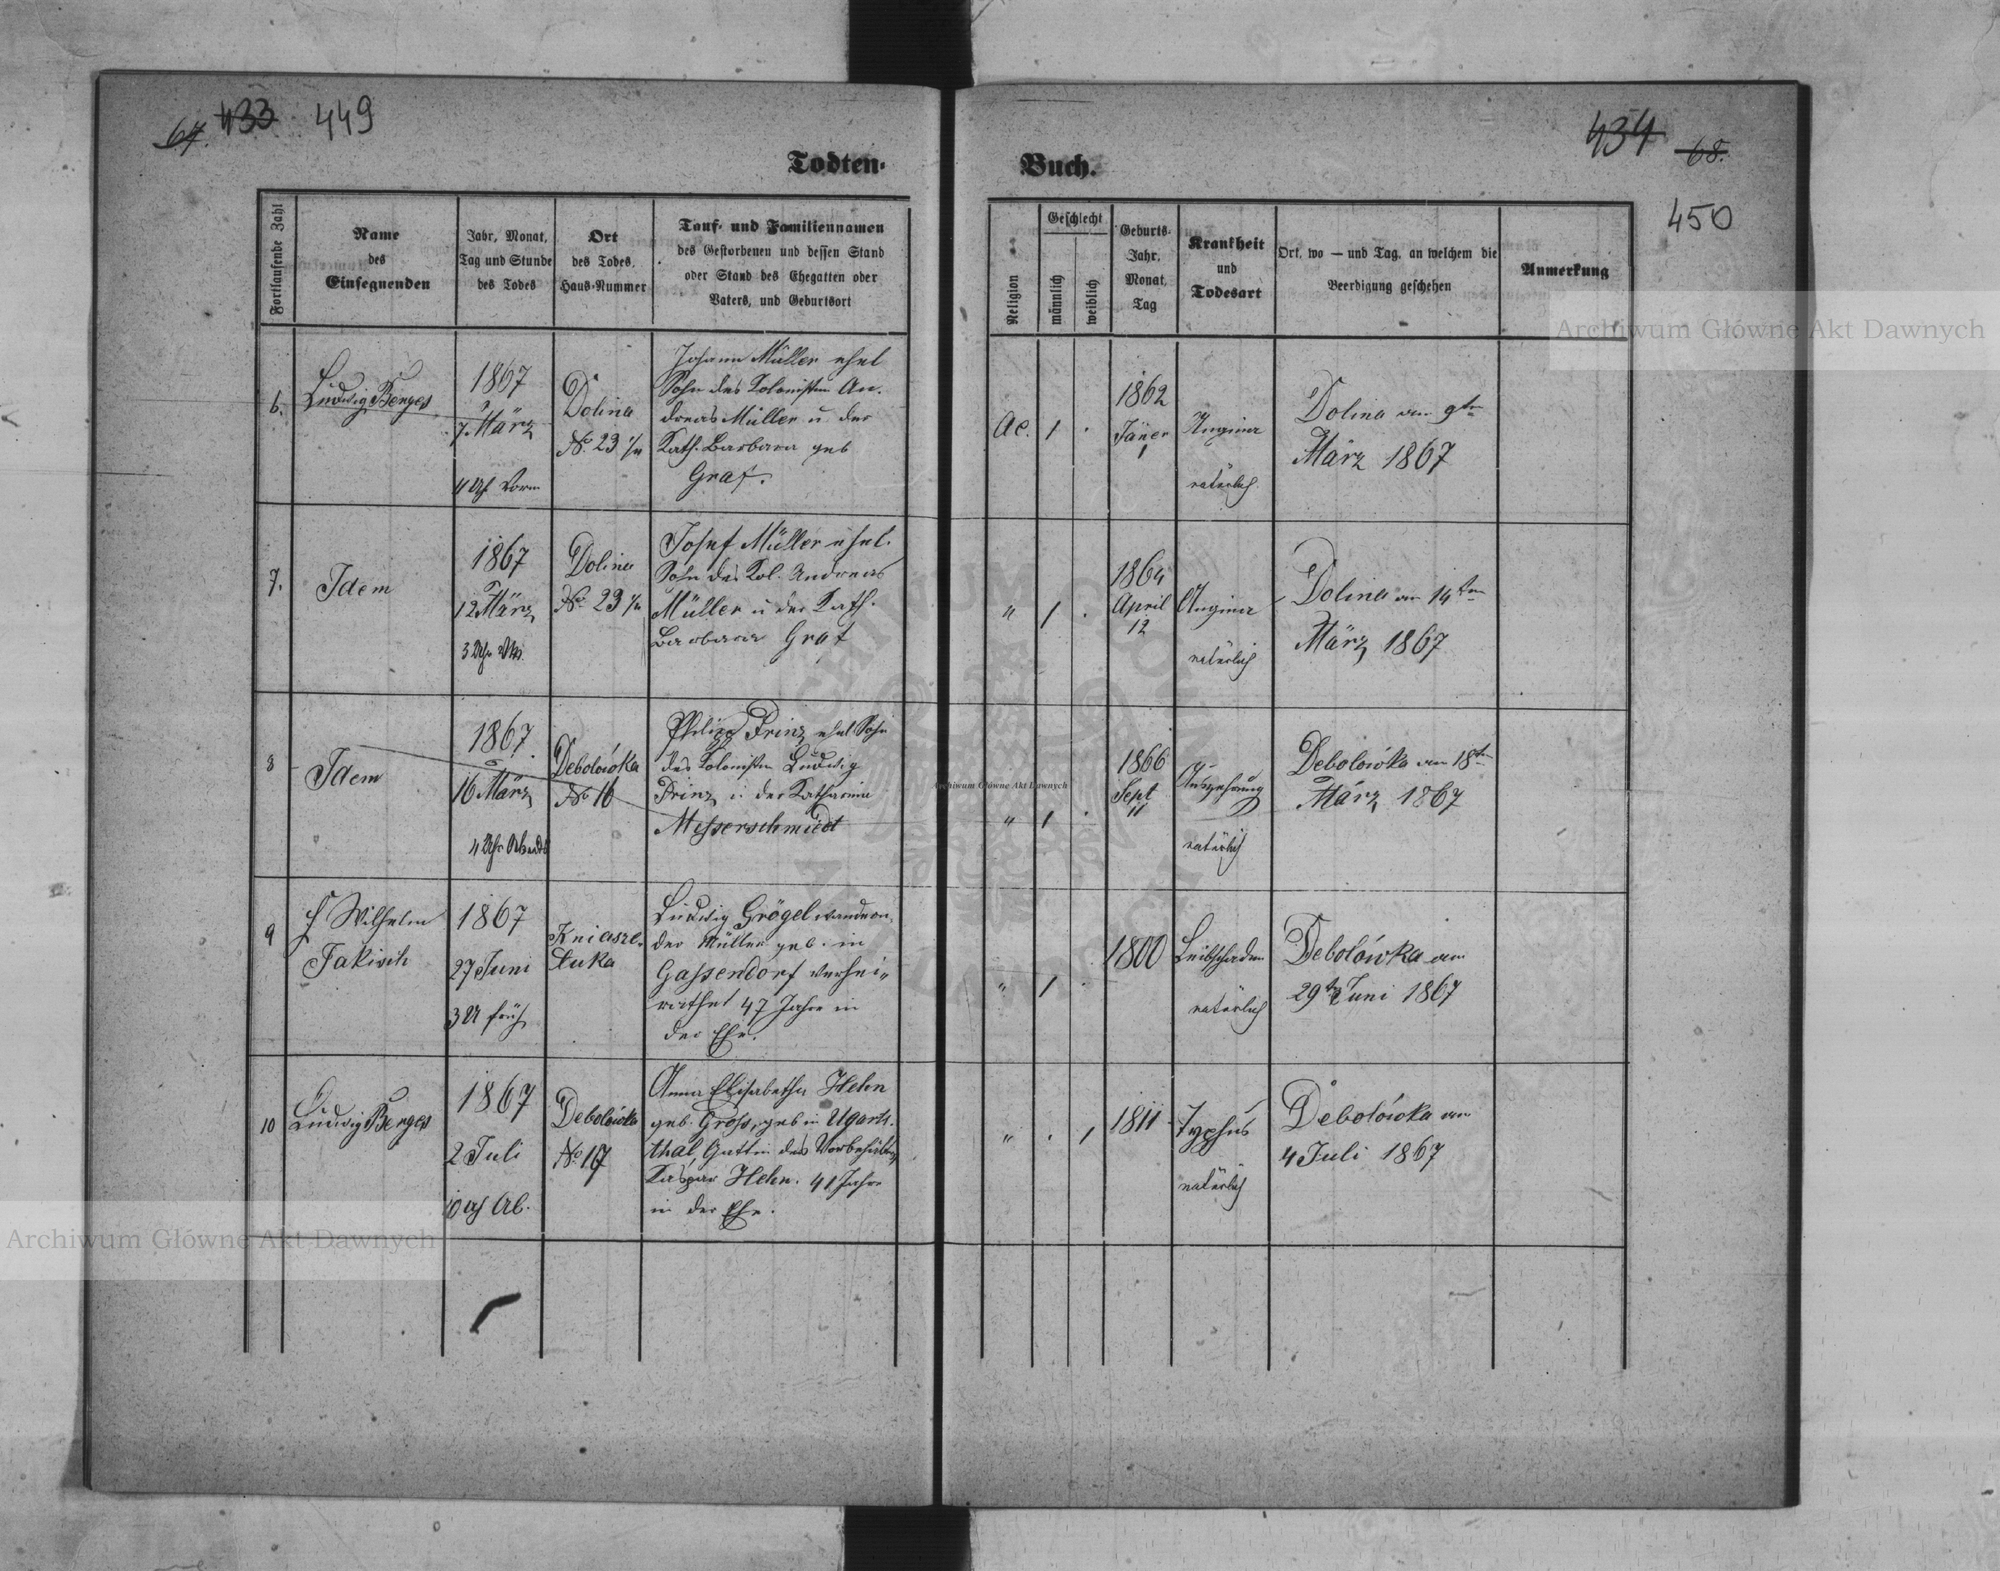 67. 433 449
434 68.
450
Todten-
Buch.
Fortlaufende Zahl
Name
des
Einsegnenden
Jahr, Monat,
Tag und Stunde
des Todes
Ort
des Todes,
Haus-Nummer
Tauf- und Familiennamen
des Gestorbenen und dessen Stand
oder Stand des Ehegatten oder
Vaters, und Geburtsort
Religion
Geschlecht
männlich
weiblich
Geburts-
Jahr,
Monat,
Tag
Krankheit
und
Todesart
Ort, wo — und Tag, an welchem die
Beerdigung geschehen
Anmerkung
Archiwum Główne Akt Dawnych
6.
Ludwig Berges
1867
7 März
4 Uhr Vorm
Dolina
No. 23
Johann Müller ehel
Sohn des Kolonisten An-
dreas Müller u. der
Kath. Barbara geb
Graf.
Ac.
1
1862
Jäner
1
Angina
natürlich
Dolina am 9ten
März 1867
7.
Idem
1867
12 März
3 Uhr
Dolina
No. 23
Josef Müller ehel.
Sohn des Kol. Andreas
Müller u der Kath.
Barbara Graf
"
1
1864
April
12
Angina
natürlich
Dolina am 14ten
März 1867
8
Idem
1867
16 März
4 Uhr Abends
Debolówka
No 16
Philipp Prinz ehel Sohn
des Kolonisten Ludwig
Prinz u der Katharina
Messerschmiedt
"
1
1866
Sept
11
Auszehrung
natürlich
Debolówka am 18ten
März 1867
Archiwum Główne Akt Dawnych
9
Wilhelm
1867
27 Juni
3 U früh
Kniaze
Łuka
Ludwig Grögel
der Müller geb. in
Gassendorf verhei-
rathet 47 Jahre in
der Ehe.
"
1
1800
Leibschaden
natürlich
Debolówka am
29ten Juni 1867
10
Ludwig Berges
1867
2 Juli
10 Ab.
Debolówka
No. 17
Anna Elisabetha Hehn
geb. Gross, geb in Ugarts-
thal, Gattin des
Kaspar Hehn. 41 Jahre
in der Ehe.
"
1
1811
Typhus
natürlich
Debolówka am
4 Juli 1867
Archiwum Główne Akt Dawnych